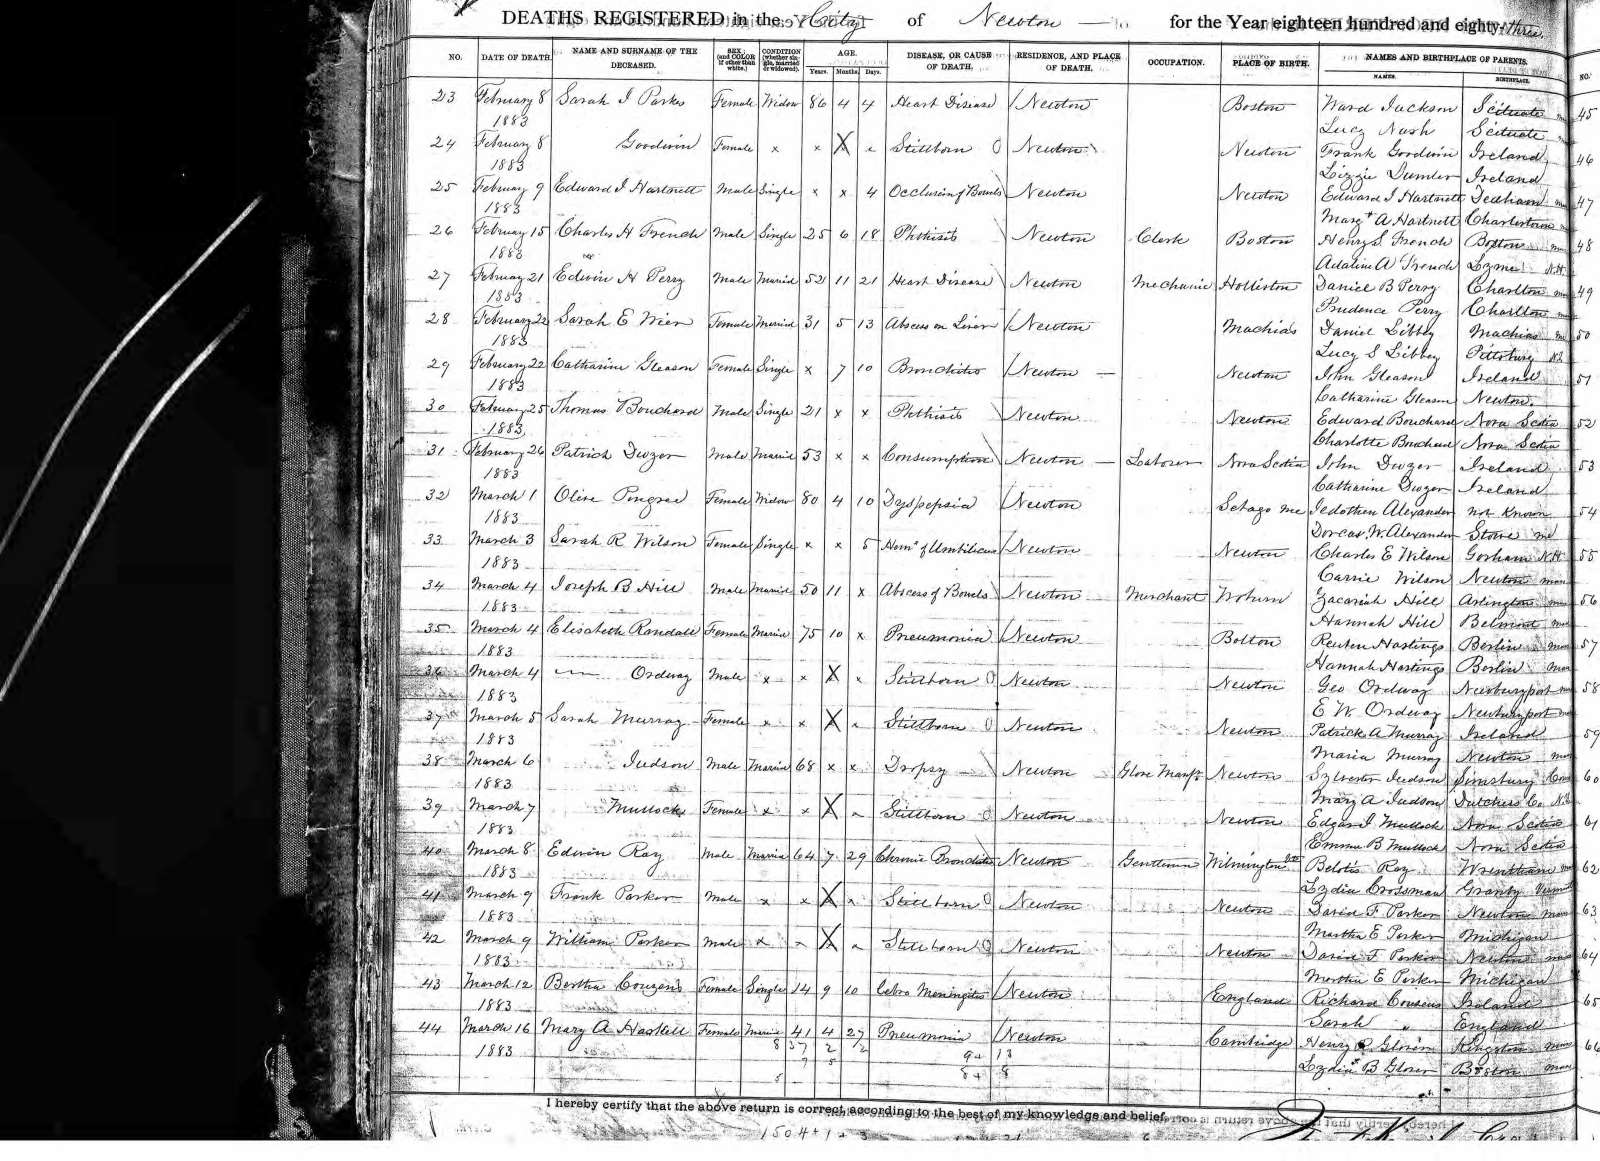 DEATHS REGISTERED in the City of Newton — for the Year eighteen hundred and eighty-three.
NO. DATE OF DEATH. NAME AND SURNAME OF THE DECEASED. SEX; (and COLOR if other than white.) CONDITION (whether single, married or widowed). AGE. Years. Months. Days. DISEASE, OR CAUSE OF DEATH. RESIDENCE, AND PLACE OF DEATH. OCCUPATION. PLACE OF BIRTH. NAMES AND BIRTHPLACE OF PARENTS. NAMES. BIRTHPLACE. NO.
23 February 8 Sarah J Parks Female Widow 86 4 4 Heart Disease Newton Boston Ward Jackson Scituate 45
1883 Lucy Nash Scituate
24 February 8 Goodwin Female x x X Stillborn Newton Newton Frank Goodwin Ireland 46
1883 Lizzie Ireland
25 February 9 Edward J Hartnett Male Single x x 4 Occlusion of Bowels Newton Newton Edward J Hartnett Dedham 47
1883 Margt A Hartnett Charlestown
26 February 15 Charles H French Male Single 25 6 18 Phthisis Newton Clerk Boston Henry S French Boston 48
1883 Adaline A French Lyme N.H.
27 February 21 Edwin H Perry Male Married 52 11 21 Heart Disease Newton Mechanic Holliston Daniel B Perry Charlton 49
1883 Prudence Perry Charlton
28 February 22 Sarah E Wier Female Married 31 5 13 Abscess on Liver Newton Machias Daniel Libbey Machias 50
1883 Lucy S Libbey Pittsburg
29 February 22 Catharine Gleason Female Single x 7 10 Bronchitis Newton — Newton John Gleason Ireland 51
1883 Catharine Gleason Newton.
30 February 25 Thomas Bouchard Male Single 21 x x Phthisis Newton Newton Edward Bouchard Nova Scotia 52
1883 Charlotte Bouchard Nova Scotia
31 February 26 Patrick Dwyer Male Married 53 x x Consumption Newton — Laborer Nova Scotia John Dwyer Ireland 53
1883 Catharine Dwyer Ireland
32 March 1 Olive Pingree Female Widow 80 4 10 Dyspepsia Newton Sebago Me Alexander not Known 54
1883 Dorcas W. Alexander Stowe Me
33 March 3 Sarah R Wilson Female Single x x 5 Hem. of Umbilicus Newton Newton Charles E Wilson Gorham N.H. 55
1883 Carrie Wilson Newton Mass
34 March 4 Joseph B Hill Male Married 50 11 x Abscess of Bowels Newton Merchant Woburn Zacariah Hill Arlington 56
1883 Hannah Hill Belmont
35 March 4 Elisabeth Randall Female Married 75 10 x Pneumonia Newton Bolton Reuben Hastings Berlin Mass 57
1883 Hannah Hastings Berlin Mass
36 March 4 — Ordway Male x x X x Stillborn Newton Newton Geo Ordway Newburyport 58
1883 E W. Ordway Newburyport
37 March 5 Sarah Murray Female x x X Stillborn Newton Newton Patrick A Murray Ireland 59
1883 Maria Murray Newton
38 March 6 Judson Male Married 68 x x Dropsy — Newton Glove Manfr Newton Sylvester Judson Simsbury Con 60
1883 Mary A Judson Dutchess Co N.Y.
39 March 7 Mullock Female x x X Stillborn Newton Newton Edgar J Mullock Nova Scotia 61
1883 Emma B Mullock Nova Scotia
40 March 8 Edwin Ray Male Married 64 7 29 Chronic Bronchitis Newton Gentleman Wilmington Ray Wrentham 62
1883 Lydia Crossman Granby Vermont
41 March 9 Frank Parker Male x x X Stillborn Newton Newton David F Parker Newton Mass 63
1883 Martha E Parker Michigan
42 March 9 William Parker Male x X Stillborn Newton Newton David F Parker Newton Mass 64
1883 Martha E Parker Michigan
43 March 12 Bertha Couzens Female Single 14 9 10 Cebro Meningitis Newton England Richard Cousens Ireland 65
1883 Sarah " England
44 March 16 Mary A Haskell Female Married 41 4 27 Pneumonia Newton Cambridge Henry Glover Kingston Mass 66
1883 Lydia B Glover Boston Mass
I hereby certify that the above return is correct, according to the best of my knowledge and belief.